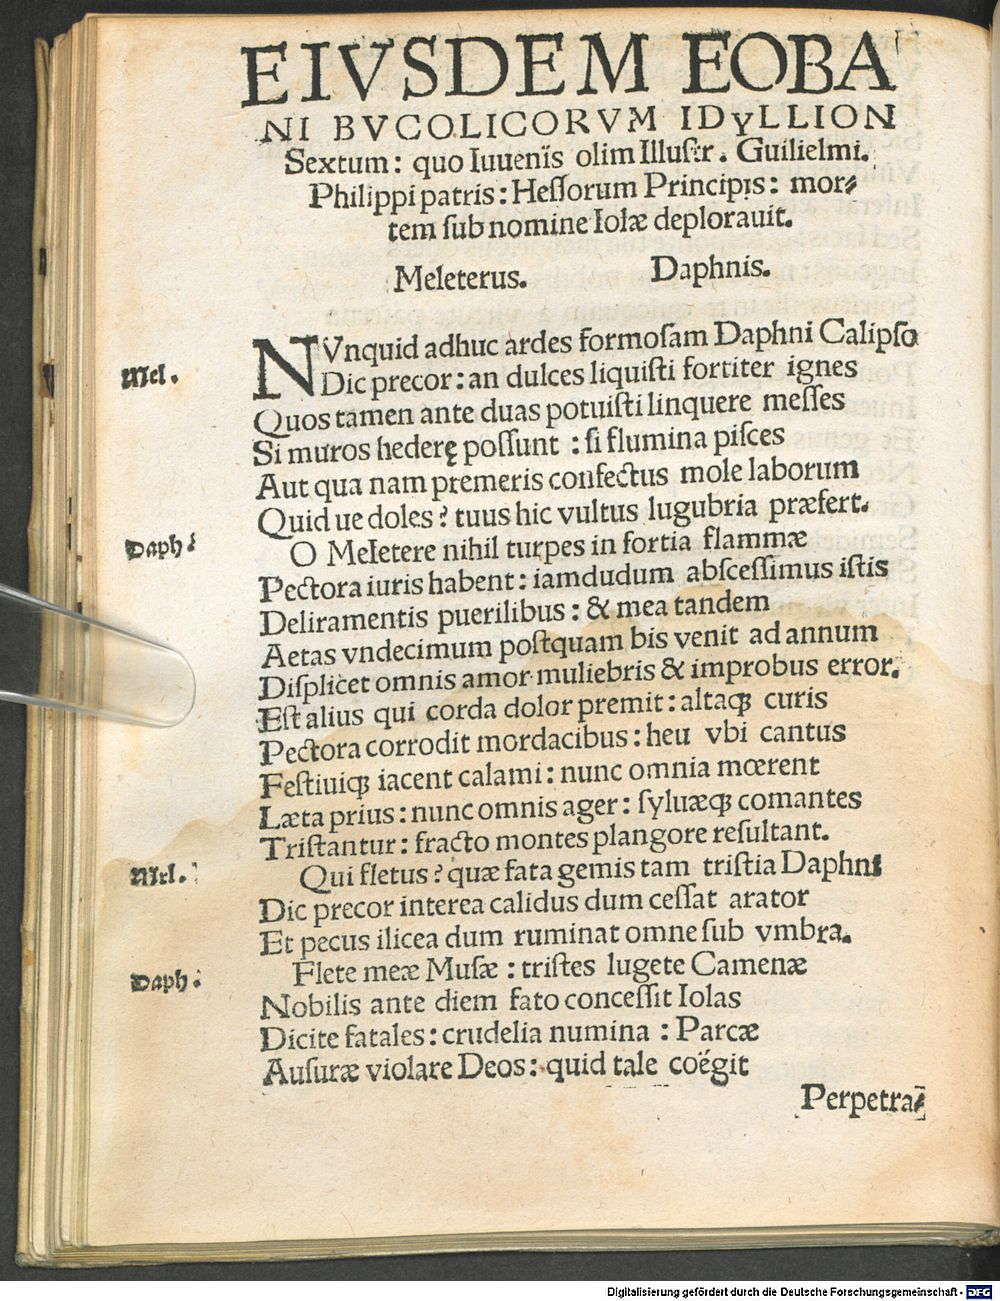 EIVSDEM EOBA
NI BVCOLICORVM IDYLLION
Sextum: quo Iuuenis olim Illustr. Guilielmi.
Philippi patris: Hessorum Principis: mor⸗
tem sub nomine Iolæ deplorauit.
Meleterus. Daphnis.
Mel. NVnquid adhuc ardes formosam Daphni Calipso
Dic precor: an dulces liquisti fortiter ignes
Quos tamen ante duas potuisti linquere messes
Si muros hederę possunt: si flumina pisces
Aut qua nam premeris confectus mole laborum
Quid ue doles? tuus hic vultus lugubria præfert.
Daph: O Meletere nihil turpes in fortia flammæ
Pectora iuris habent: iamdudum abscessimus istis
Deliramentis puerilibus: & mea tandem
Aetas vndecimum postquam bis venit ad annum
Displicet omnis amor muliebris & improbus error.
Est alius qui corda dolor premit: altaqꝫ curis
Pectora corrodit mordacibus: heu vbi cantus
Festiuiqꝫ iacent calami: nunc omnia mœrent
Læta prius: nunc omnis ager: syluæqꝫ comantes
Tristantur: fracto montes plangore resultant.
Mel. Qui fletus? quæ fata gemis tam tristia Daphni
Dic precor interea calidus dum cessat arator
Et pecus ilicea dum ruminat omne sub vmbra.
Daph: Flete meæ Musæ: tristes lugete Camenæ
Nobilis ante diem fato concessit Iolas
Dicite fatales: crudelia numina: Parcæ
Ausuræ violare Deos: quid tale coëgit
Perpetra⸗
Digitalisierung gefördert durch die Deutsche Forschungsgemeinschaft - DFG